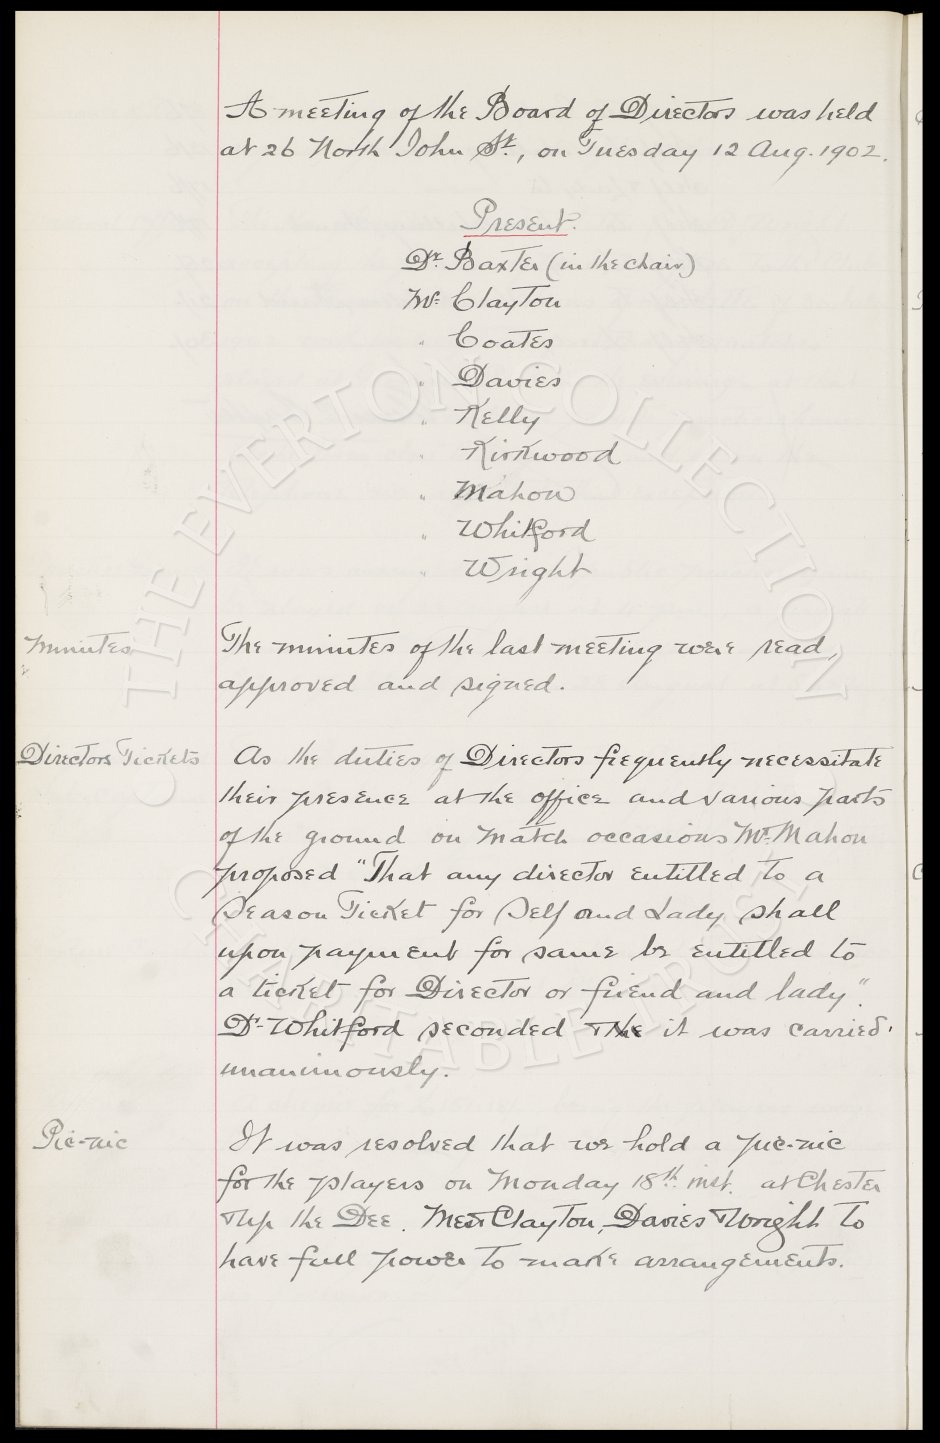 A meeting of the Board of Directors was held
at 26 North John St., on Tuesday 12 Aug. 1902.
Present.
Dr. Baxter (in the chair)
Mr. Clayton
" Coates
" Davies
" Kelly
" Kirkwood
" Mahon
" Whitford
" Wright
Minutes
The minutes of the last meeting were read,
approved and signed.
Directors Tickets
As the duties of Directors frequently necessitate
their presence at the office and various parts
of the ground on Match occasions Mr. Mahon
proposed "That any director entitled to a
Season Ticket for Self and Lady shall
upon payment for same be entitled to
a ticket for Director or friend and lady".
Dr. Whitford seconded & it was carried
unanimously.
Pic-nic
It was resolved that we hold a pic-nic
for the players on Monday 18th inst. at Chester
& up the Dee. Messrs Clayton, Davies & Wright to
have full power to make arrangements.
© THE EVERTON COLLECTION
CHARITABLE TRUST